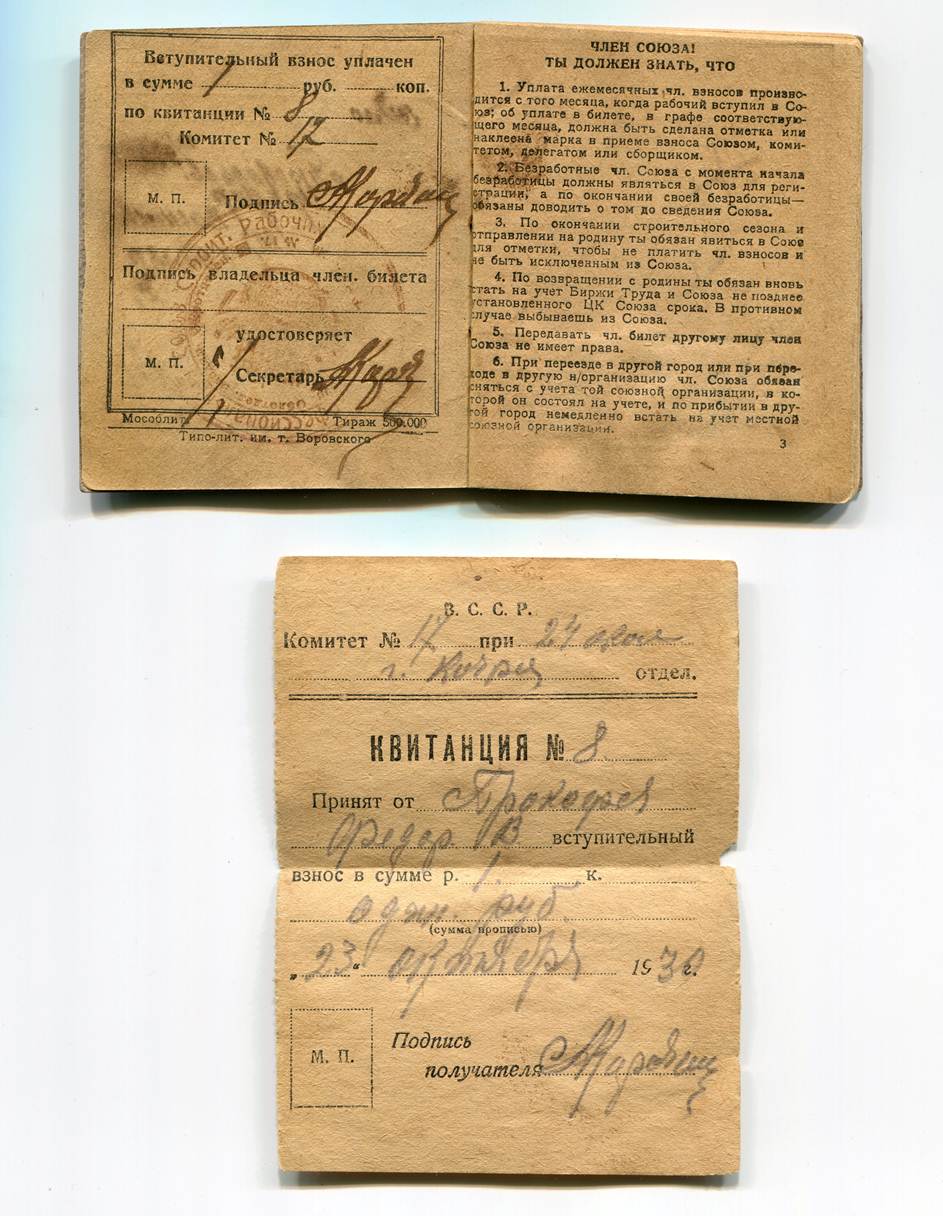 Вступительный взнос уплачен
в сумме 1 руб. коп.
по квитанции № 8
Комитет № 17
М. П.
Подпись
Подпись владельца член. билета
удостоверяет
М. П.
Секретарь
Мособлит Тираж 500.000
Типо-лит. им. т. Воровского
ЧЛЕН СОЮЗА!
ТЫ ДОЛЖЕН ЗНАТЬ, ЧТО
1. Уплата ежемесячных чл. взносов произво-
дится с того месяца, когда рабочий вступил в Со-
юз; об уплате в билете, в графе соответствую-
щего месяца, должна быть сделана отметка или
наклеена марка в приеме взноса Союзом, коми-
тетом, делегатом или сборщиком.
2. Безработные чл. Союза с момента начала
безработицы должны являться в Союз для реги-
страции, а по окончании своей безработицы—
обязаны доводить о том до сведения Союза.
3. По окончании строительного сезона и
отправлении на родину ты обязан явиться в Союз
для отметки, чтобы не платить чл. взносов и
не быть исключенным из Союза.
4. По возвращении с родины ты обязан вновь
стать на учет Биржи Труда и Союза не позднее
установленного ЦК Союза срока. В противном
случае выбываешь из Союза.
5. Передавать чл. билет другому лицу член
Союза не имеет права.
6. При переезде в другой город или при пере-
ходе в другую н/организацию чл. Союза обязан
сняться с учета той союзной организации, в ко-
торой он состоял на учете, и по прибытии в дру-
гой город немедленно встать на учет местной
союзной организации.
3
В. С. С. Р.
Комитет № 17 при 24
г. отдел.
КВИТАНЦИЯ № 8
Принят от Прокофея
Федор. В вступительный
взнос в сумме р. 1. к.
один. руб.
(сумма прописью)
„23“ октября 1930 г.
М. П.
Подпись
получателя